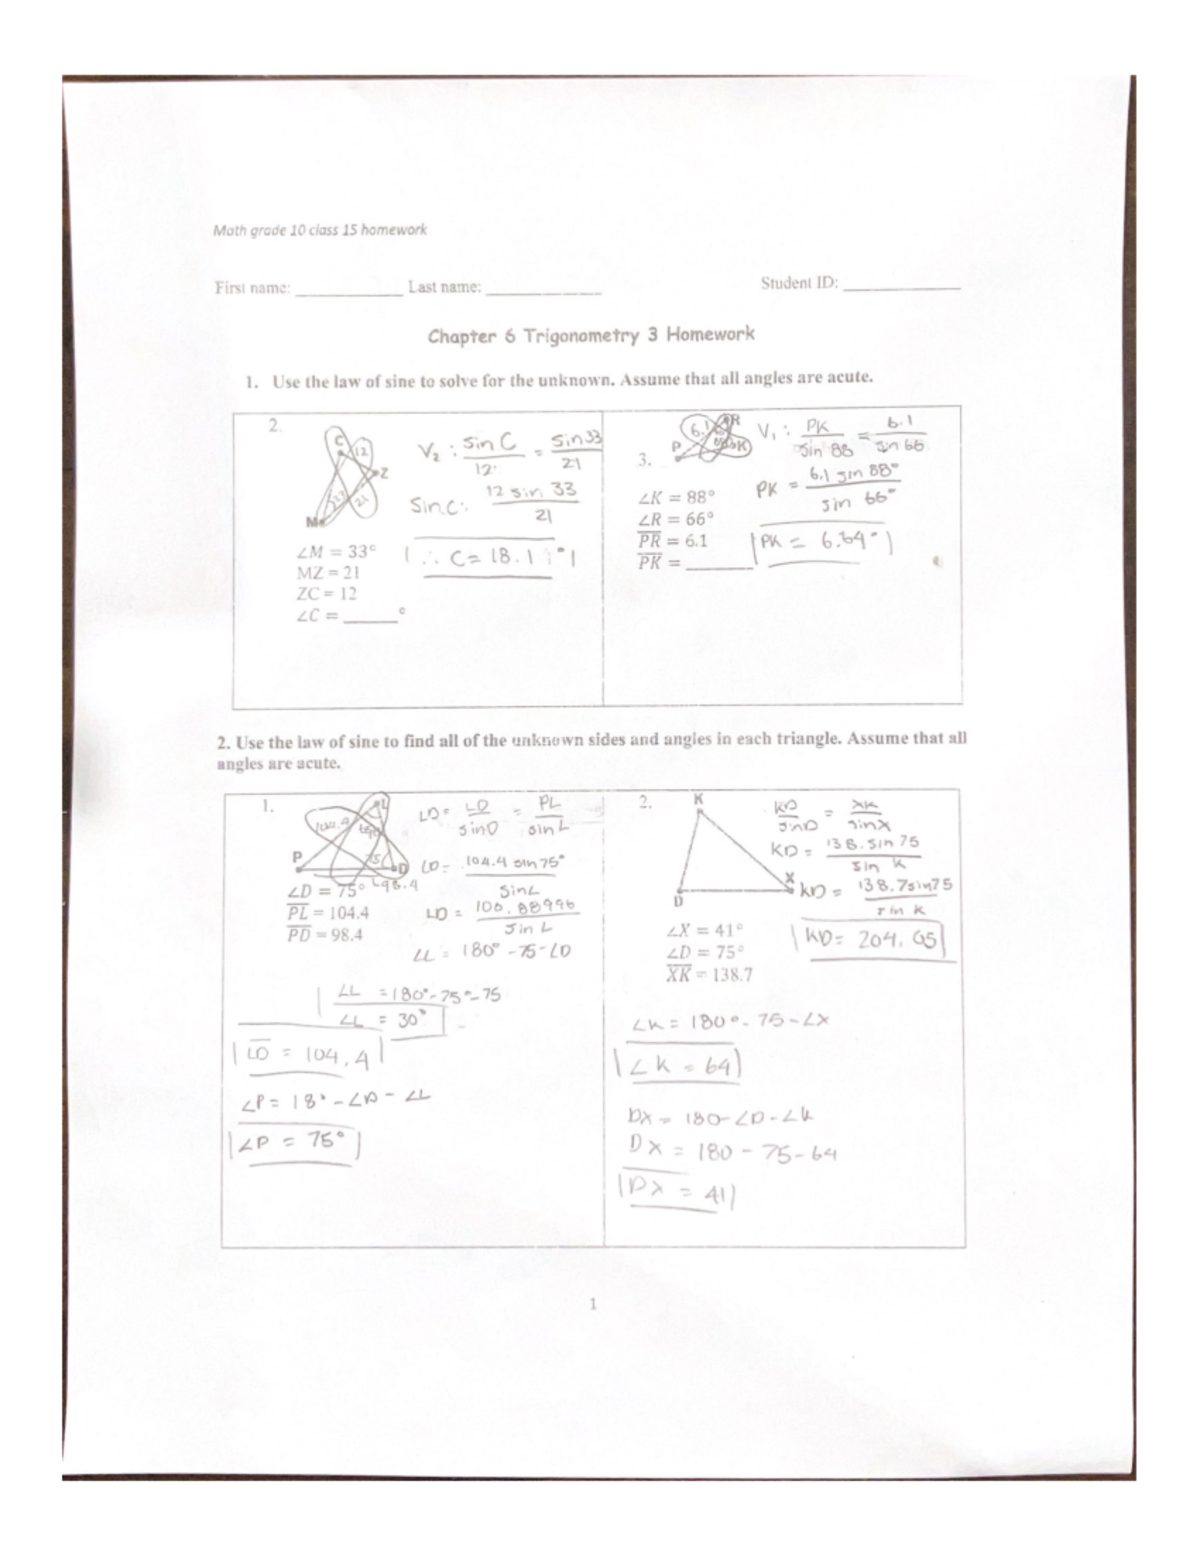 Math grade 10 class 15 homework
First name: ____________ Last name: ____________ Student ID: ____________
Chapter 6 Trigonometry 3 Homework
1. Use the law of sine to solve for the unknown. Assume that all angles are acute.
2.
C
12
Z
21
M
V₂ : sin C / 12 = sin 33 / 21
Sin C: 12 sin 33 / 21
∴ C = 18.1°
∠M = 33°
MZ = 21
ZC = 12
∠C = ______°
3.
6.1
R
P
K
V₁ : PK / sin 88 = 6.1 / sin 66
PK = 6.1 sin 88° / sin 66°
PK = 6.64°
∠K = 88°
∠R = 66°
PR = 6.1
PK = ______
2. Use the law of sine to find all of the unknown sides and angles in each triangle. Assume that all
angles are acute.
1.
L
104.4
P
75
D
98.4
∠D = 75°
PL = 104.4
PD = 98.4
LD = LD / sin D = PL / sin L
LD = 104.4 sin 75° / sin L
LD = 100.88996 / sin L
∠L = 180° - 75 - ∠D
∠L = 180° - 75° - 75
∠L = 30°
LD = 104.4
∠P = 18° - ∠D - ∠L
∠P = 75°
2.
K
X
D
∠X = 41°
∠D = 75°
XK = 138.7
KD / sin D = XK / sin X
KD = 138. sin 75 / sin K
KD = 138.7 sin 75 / sin K
KD = 204.05
∠K = 180° - 75 - ∠X
∠K = 64
DX = 180 - ∠D - ∠K
DX = 180 - 75 - 64
DX = 41
1